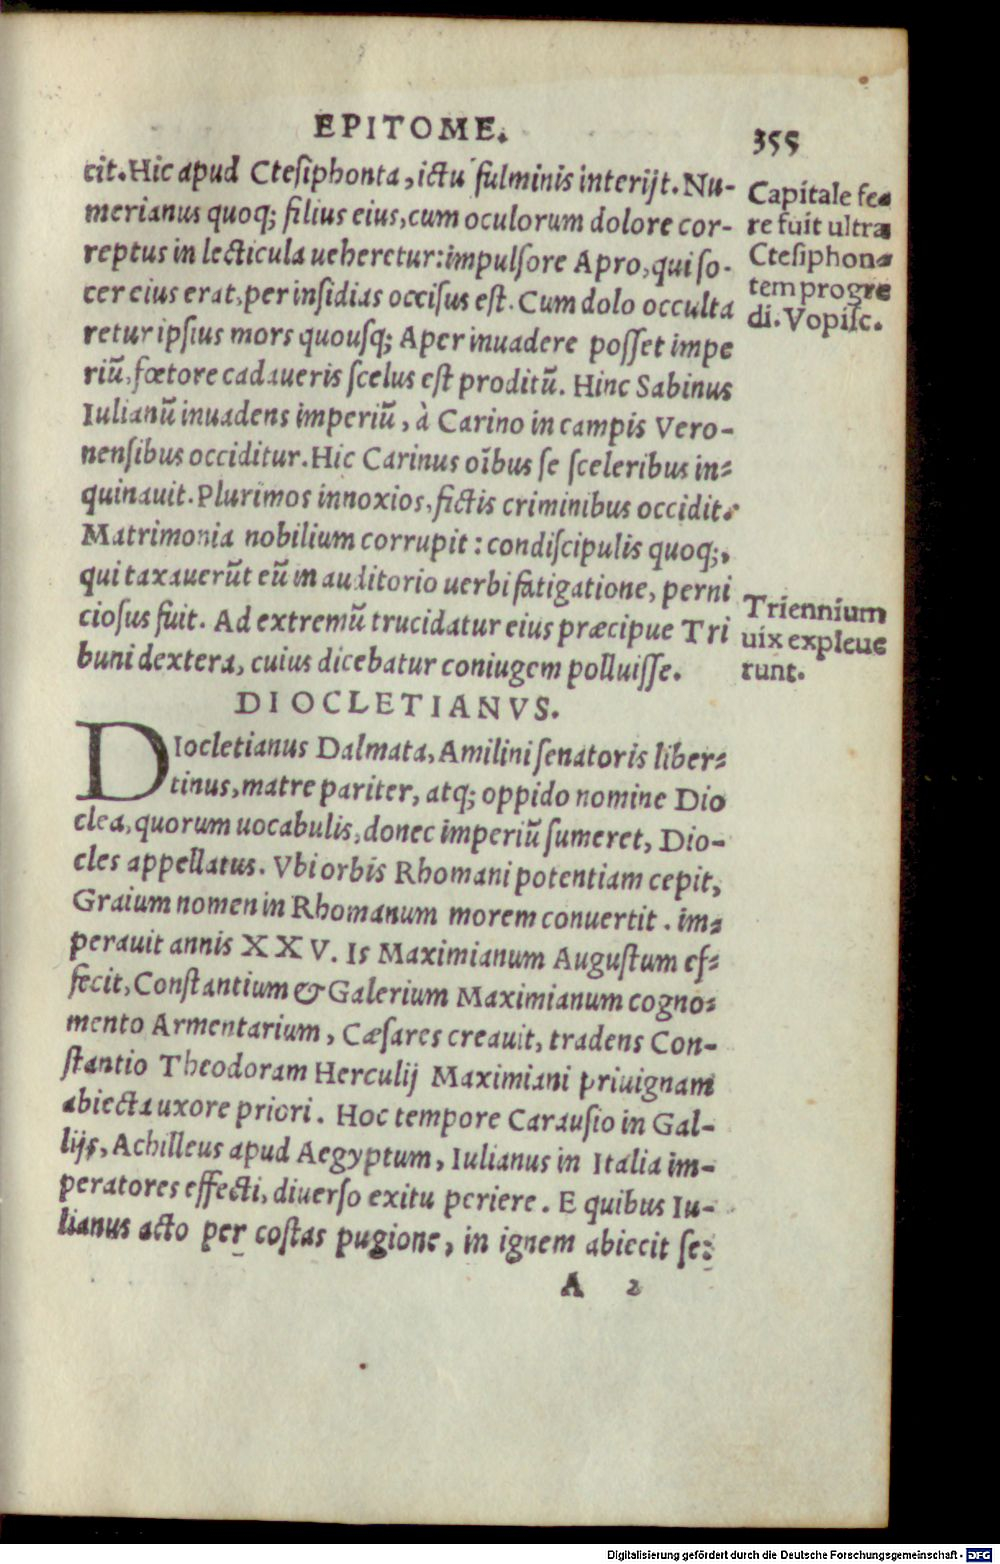 EPITOME.
355
cit. Hic apud Ctesiphonta, ictu fulminis interijt. Nu-
merianus quoq; filius eius, cum oculorum dolore cor-
reptus in lecticula ueheretur: impulsore Apro, qui so-
cer eius erat, per insidias occisus est. Cum dolo occulta
retur ipsius mors quousq; Aper inuadere posset impe
riũ, fœtore cadaueris scelus est proditũ. Hinc Sabinus
Iulianũ inuadens imperiũ, à Carino in campis Vero-
nensibus occiditur. Hic Carinus oĩbus se sceleribus in-
quinauit. Plurimos innoxios, fictis criminibus occidit.
Matrimonia nobilium corrupit: condiscipulis quoq;,
qui taxauerũt eũ in auditorio uerbi fatigatione, perni
ciosus fuit. Ad extremũ trucidatur eius præcipue Tri
buni dextera, cuius dicebatur coniugem polluisse.
Capitale fe-
re fuit ultra
Ctesiphon-
tem progre
di. Vopisc.
Triennium
uix expleue
runt.
DIOCLETIANVS.
DIocletianus Dalmata, Amilini senatoris liber-
tinus, matre pariter, atq; oppido nomine Dio
clea, quorum uocabulis, donec imperiũ sumeret, Dio-
cles appellatus. Vbi orbis Rhomani potentiam cepit,
Graium nomen in Rhomanum morem conuertit. im-
perauit annis XXV. Is Maximianum Augustum ef-
fecit, Constantium & Galerium Maximianum cogno-
mento Armentarium, Cæsares creauit, tradens Con-
stantio Theodoram Herculij Maximiani priuignam
abiecta uxore priori. Hoc tempore Carausio in Gal-
lijs, Achilleus apud Aegyptum, Iulianus in Italia im-
peratores effecti, diuerso exitu periere. E quibus Iu-
lianus acto per costas pugione, in ignem abiecit se:
A 2
Digitalisierung gefördert durch die Deutsche Forschungsgemeinschaft - DFG